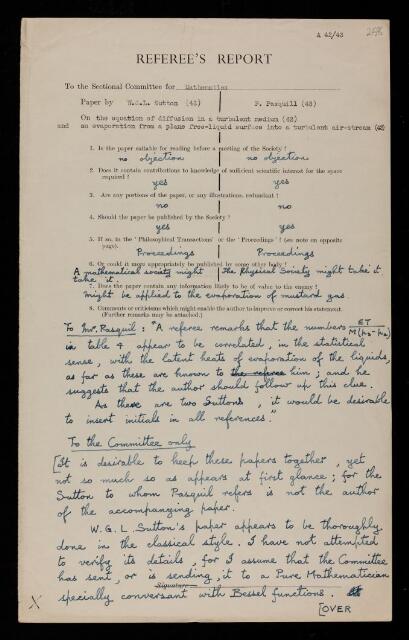 A 42/43
REFEREE'S REPORT
To the Sectional Committee for Mathematics
Paper by W.G.L. Sutton (42) F. Pasquill (43)
On the equation of diffusion in a turbulent medium (42)
and on evaporation from a plane free-liquid surface into a turbulent air-stream (43)
1. Is the paper suitable for reading before a meeting of the Society?
no objection no objection
2. Does it contain contributions to knowledge of sufficient scientific interest for the space
required?
yes yes
3. Are any portions of the paper, or any illustrations, redundant?
no no
4. Should the paper be published by the Society?
yes yes
5. If so, in the 'Philosophical Transactions' or the 'Proceedings'? (see note on opposite
page).
Proceedings Proceedings
6. Or could it more appropriately be published by some other body?
A mathematical society might The Physical Society might take it.
take it.
7. Does the paper contain any information likely to be of value to the enemy?
Might be applied to the evaporation of mustard gas.
8. Comments or criticisms which might enable the author to improve or correct his statement.
(Further remarks may be attached.)
To Mr. Pasquil: "A referee remarks that the numbers ET
in table 4 appear to be correlated, in the statistical
sense, with the latent heats of evaporation of the liquids,
as far as these are known to the referee him; and he
suggests that the author should follow up this clue.
As there are two Suttons, it would be desirable
to insert initials in all references."
To the Committee only
[It is desirable to keep these papers together, yet
not so much so as appears at first glance; for the
Sutton to whom Pasquil refers is not the author
of the accompanying paper.
W.G.L. Sutton's paper appears to be thoroughly
done in the classical style. I have not attempted
to verify its details, for I assume that the Committee
has sent, or is sending, it to a Pure Mathematician
Signature
specially conversant with Bessel functions.
X
[OVER